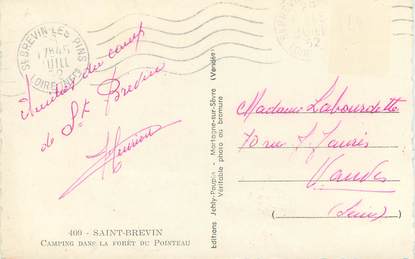 ST BREVIN LES PINS
17H45
JUIL
52
LOIRE INFRE
52
du camp
de St Brevin
409 - SAINT-BREVIN
CAMPING DANS LA FORÊT DU POINTEAU
Editions Jehly-Poupin - Mortagne-sur-Sèvre (Vendée)
Véritable photo au bromure
Madame Labourdette
70 rue J. Jaurès
Vanves
(Seine)